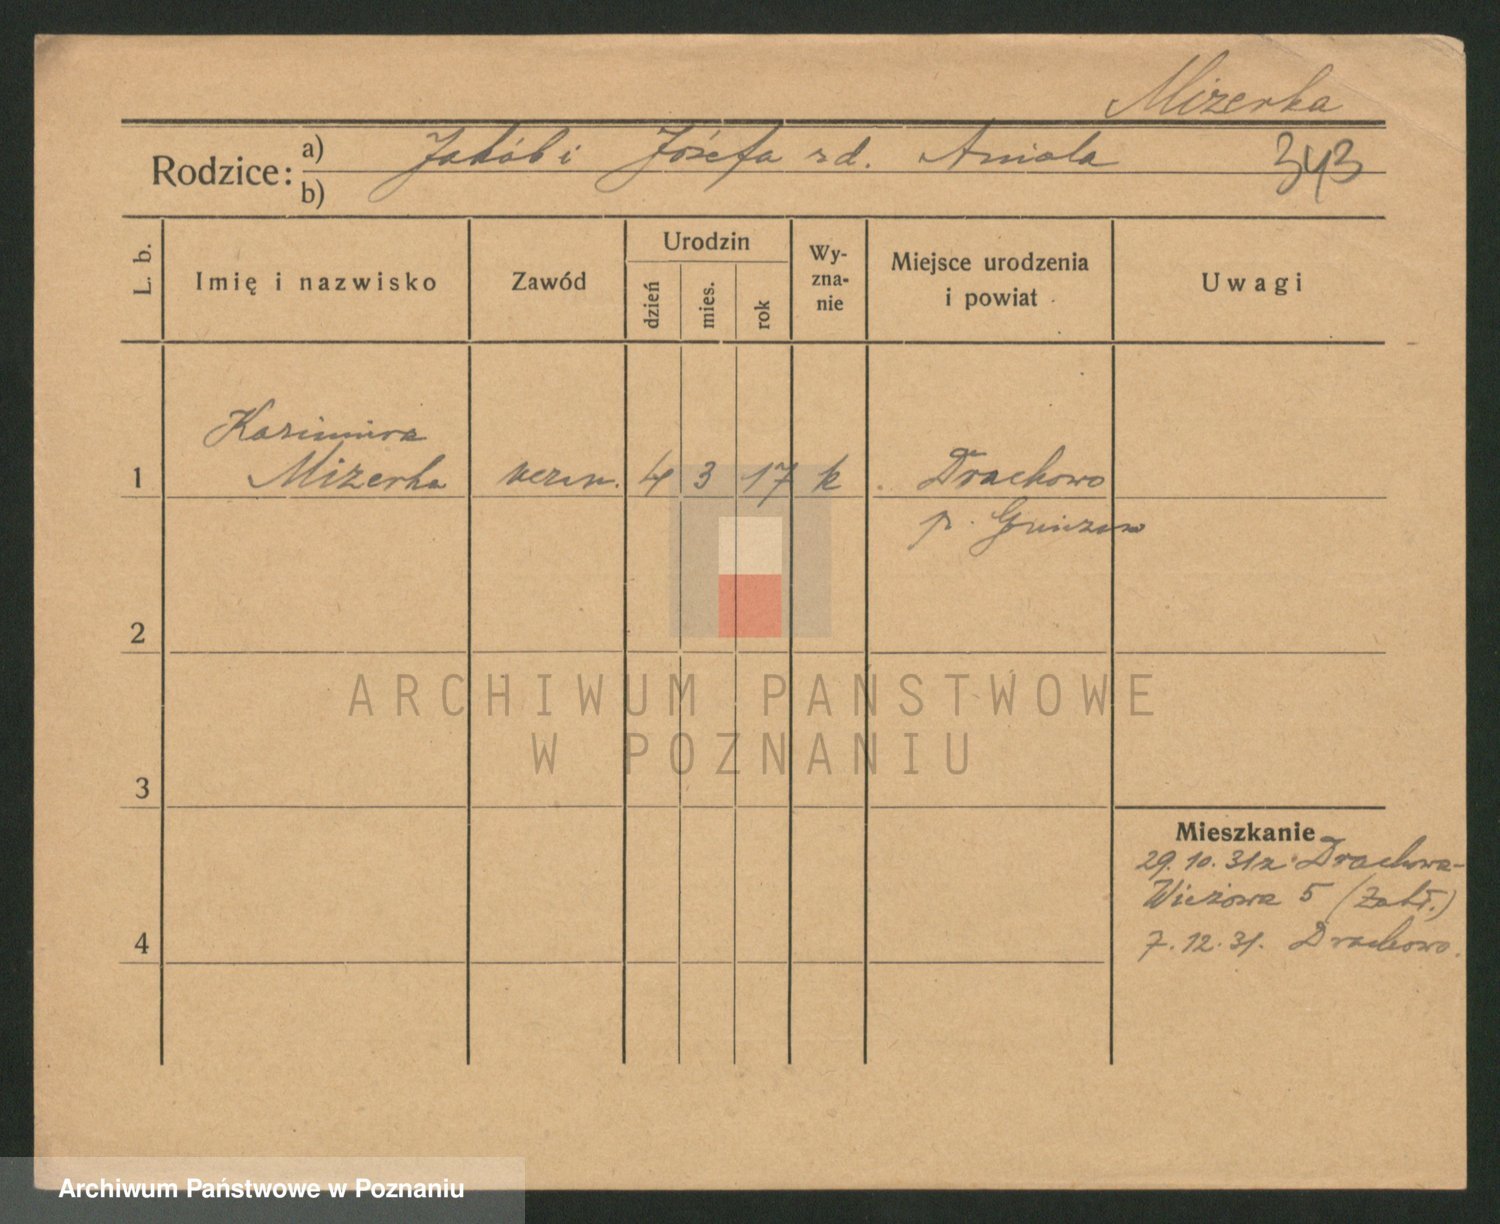 Mizerka
Rodzice: a) Jakób i Józefa zd. Aniola
b)
343
L. b.
Imię i nazwisko
Zawód
Urodzin
dzień
mies.
rok
Wy-
zna-
nie
Miejsce urodzenia
i powiat
Uwagi
Kazimiera
1 Mizerka uczen. 4 3 17 k Drachowo
p. Gniezno
2
3
4
Mieszkanie
29.10.31 z Drachowa-
Wieżowa 5 (Zakł.)
7.12.31. Drachowo.
ARCHIWUM PAŃSTWOWE
W POZNANIU
Archiwum Państwowe w Poznaniu